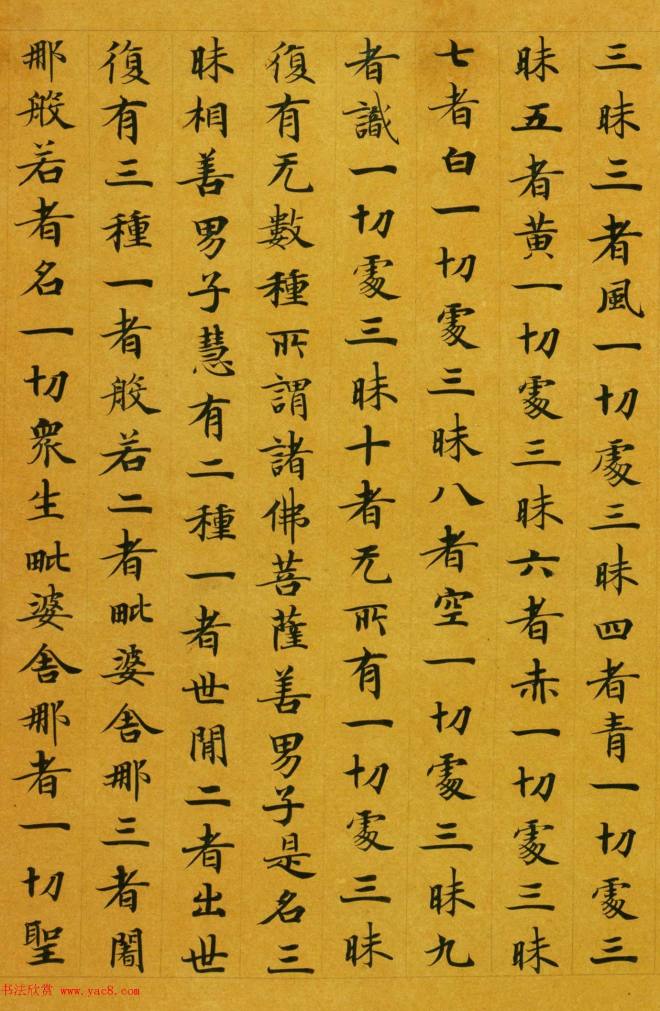 三昧三者風一切處三昧四者青一切處三
昧五者黄一切處三昧六者赤一切處三昧
七者白一切處三昧八者空一切處三昧九
者識一切處三昧十者无所有一切處三昧
復有无數種所謂諸佛菩薩善男子是名三
昧相善男子慧有二種一者世間二者出世
復有三種一者般若二者毗婆舍那三者闍
那般若者名一切衆生毗婆舍那者一切聖
书法欣赏 www.yac8.com